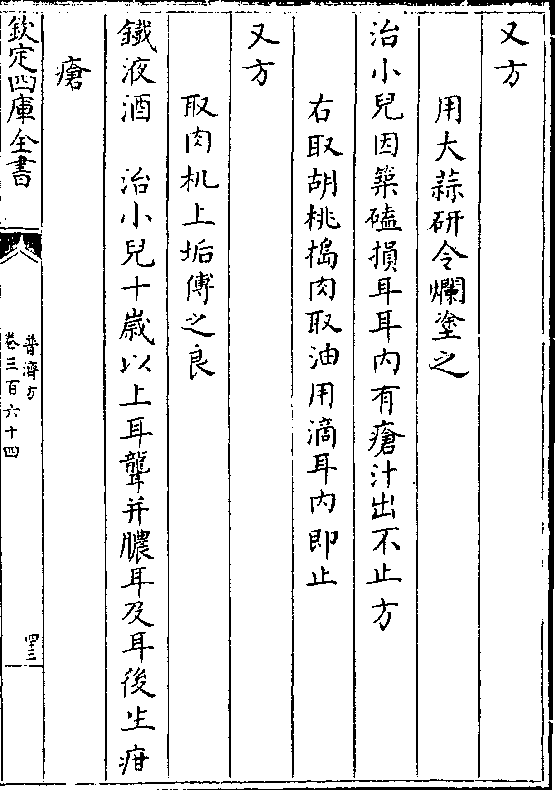 又方
用大蒜研令爛塗之
治小兒因築磕損耳耳内有瘡汁出不止方
右取胡桃搗肉取油用滴耳内即止
又方
取肉机上垢傅之良
鐵液酒　治小兒十歲以上耳聾并膿耳及耳後生疳
瘡
欽定四庫全書
普濟方
卷三百六十四
四三